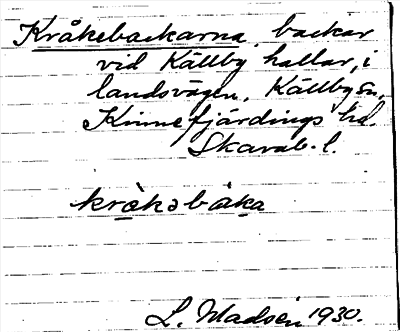 Kråkebackarna, backar
vid Källby hallar, i
landsvägen, Källby sn,
Kinnefjärdings hd.
Skarab. l.
krɑ̀kəbàka
L. Madsén 1930.